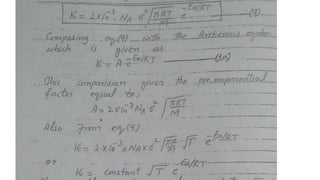 K = 2×10⁻³ N_A σ² √(πRT/M) e^(-Ea/RT) (9)
Comparing eq(9) with the Arrhenius equation
which is given as
K = A e^(-Ea/RT) (10)
This comparision gives the pre-exponential
factor equal to,
A = 2×10⁻³ N_A σ² √(πRT/M)
Also from eq(9)
K = 2×10⁻³ × N_A × σ² √(πR/M) √T e^(-Ea/RT)
or
K = constant √T e^(-Ea/RT)